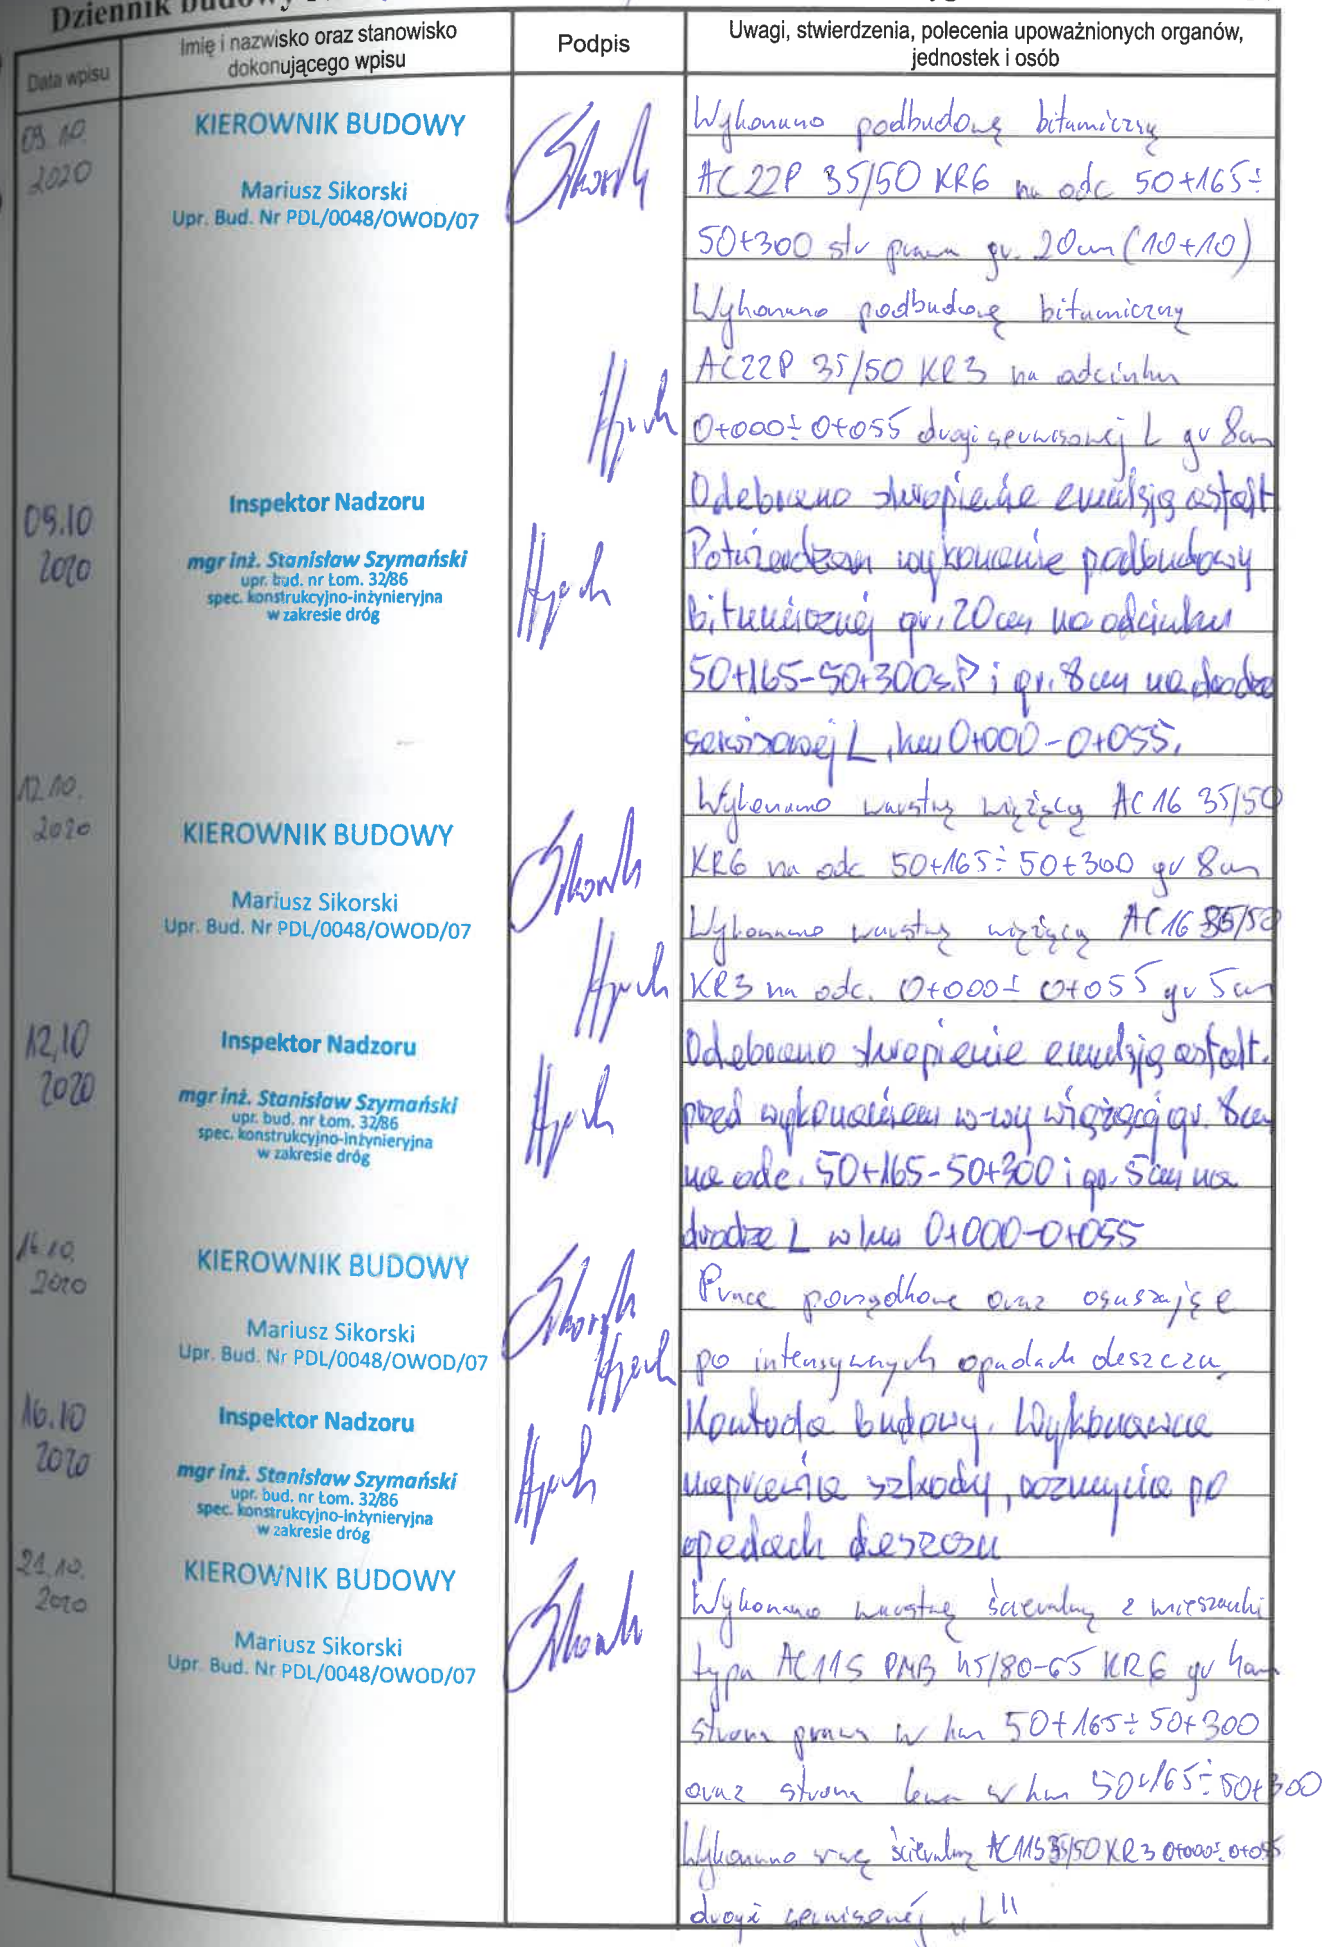 Dziennik budowy
Data wpisu
Imię i nazwisko oraz stanowisko
dokonującego wpisu
Podpis
Uwagi, stwierdzenia, polecenia upoważnionych organów,
jednostek i osób
09.10.
2020
KIEROWNIK BUDOWY
Mariusz Sikorski
Upr. Bud. Nr PDL/0048/OWOD/07
Wykonano podbudowę bitumiczną
AC22P 35/50 KR6 na odc 50+165÷
50+300 str prawa gr. 20cm (10+10)
Wykonano podbudowę bitumiczną
AC22P 35/50 KR3 na odcinku
0+000÷0+055 drogi serwisowej L gr 8cm
09.10
2020
Inspektor Nadzoru
mgr inż. Stanisław Szymański
upr. bud. nr Łom. 32/86
spec. konstrukcyjno-inżynieryjna
w zakresie dróg
Odebrano skropienie emulsją asfalt
Potwierdzam wykonanie podbudowy
bitumicznej gr. 20cm na odcinku
50+165-50+300 s.P i gr. 8cm na drodze
serwisowej L, km 0+000-0+055.
12.10.
2020
KIEROWNIK BUDOWY
Mariusz Sikorski
Upr. Bud. Nr PDL/0048/OWOD/07
Wykonano warstwę wiążącą AC 16 35/50
KR6 na odc 50+165÷50+300 gr 8cm
Wykonano warstwę wiążącą AC 16 35/50
KR3 na odc. 0+000÷0+055 gr 5cm
12.10
2020
Inspektor Nadzoru
mgr inż. Stanisław Szymański
upr. bud. nr Łom. 32/86
spec. konstrukcyjno-inżynieryjna
w zakresie dróg
Odebrano skropienie emulsją asfalt.
przed wykonaniem w-wy wiążącej gr. 8cm
na odc. 50+165-50+300 i gr. 5cm na
drodze L w km 0+000-0+055
16.10.
2020
KIEROWNIK BUDOWY
Mariusz Sikorski
Upr. Bud. Nr PDL/0048/OWOD/07
Prace porządkowe oraz osuszające
po intensywnych opadach deszczu
16.10
2020
Inspektor Nadzoru
mgr inż. Stanisław Szymański
upr. bud. nr Łom. 32/86
spec. konstrukcyjno-inżynieryjna
w zakresie dróg
Kontrola budowy. Wykonawca
naprawia szkody, rozmycia po
opadach deszczu
21.10.
2020
KIEROWNIK BUDOWY
Mariusz Sikorski
Upr. Bud. Nr PDL/0048/OWOD/07
Wykonano warstwę ścieralną z mieszanki
typu AC11S PMB 45/80-65 KR6 gr 4cm
strona prawa w km 50+165÷50+300
oraz strona lewa w km 50+165÷50+300
Wykonano ścieralną AC11S 35/50 KR3 0+000÷0+055
drogi serwisowej „L"